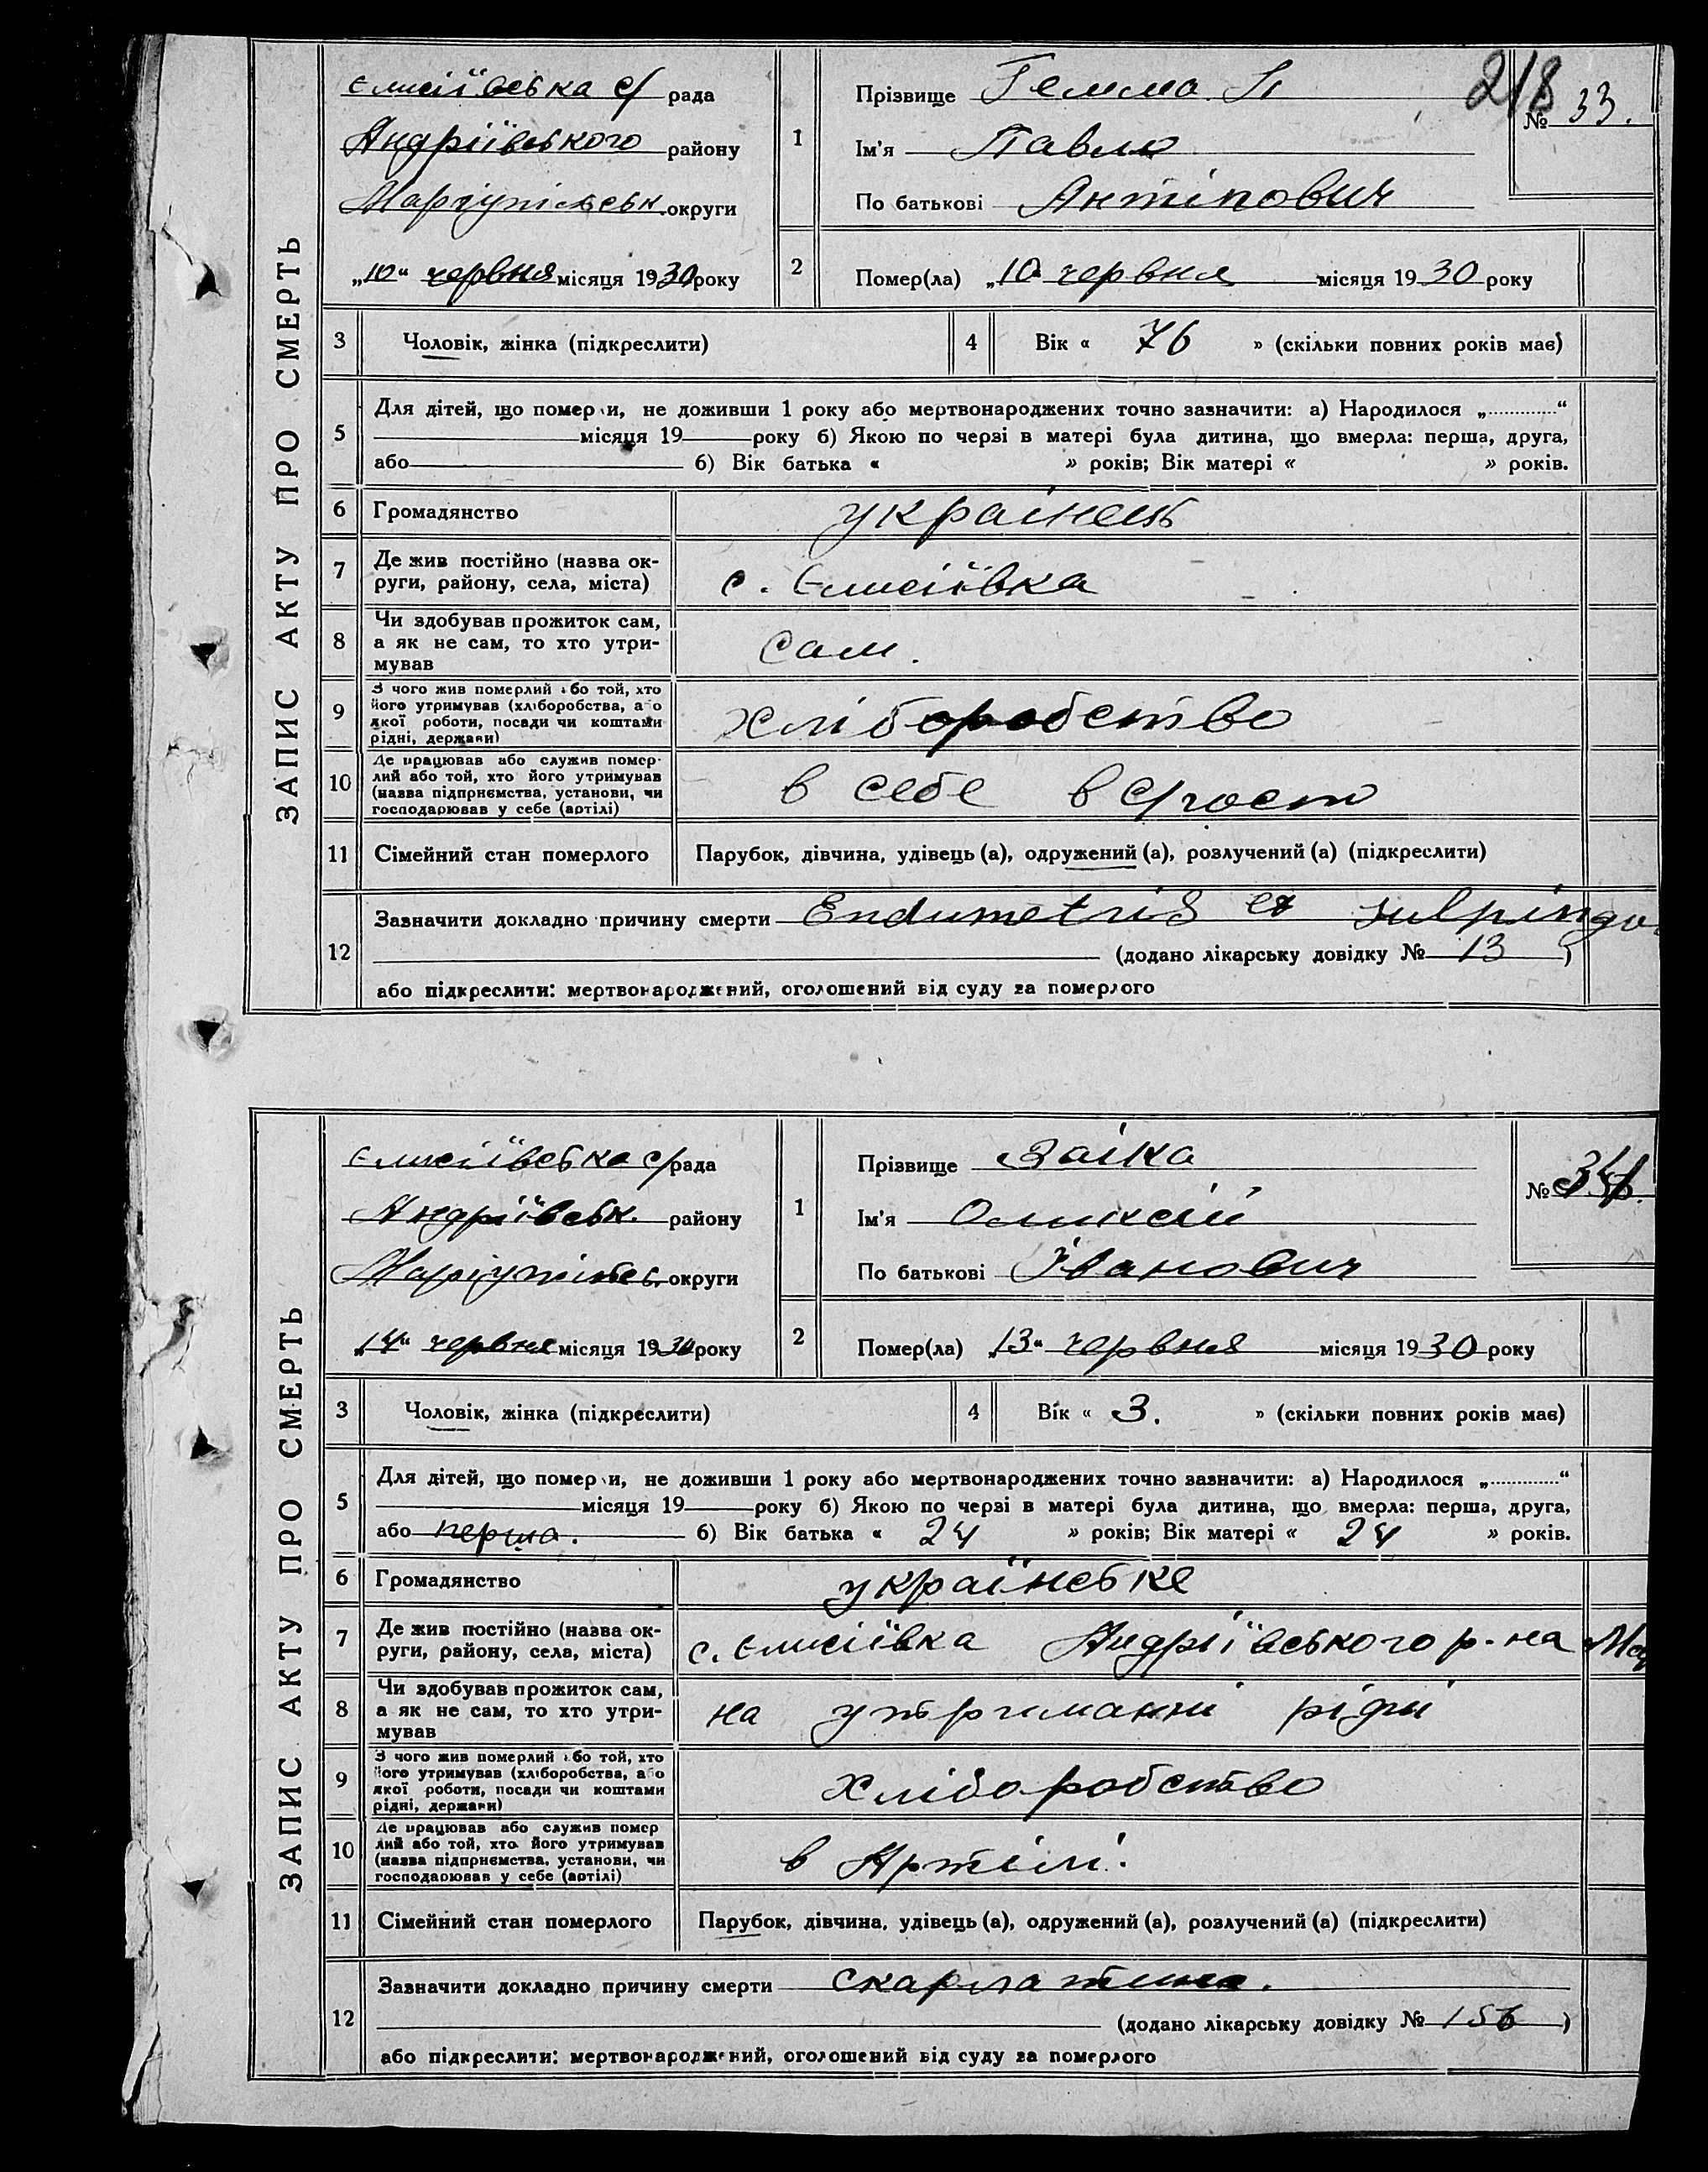 ЗАПИС АКТУ ПРО СМЕРТЬ
Єлисіївська с/ рада
Андріївського району
Маріупільськ. округи
„10“ червня місяця 1930 року
1
Прізвище
Ім'я Павло
По батькові Антіпович
218
№ 33.
2
Помер(ла) „10“ червня місяця 1930 року
3 Чоловік, жінка (підкреслити)
4 Вік « 76 » (скільки повних років має)
5
Для дітей, що померли, не доживши 1 року або мертвонароджених точно зазначити: а) Народилося „............“
місяця 19 року б) Якою по черзі в матері була дитина, що вмерла: перша, друга,
або б) Вік батька « » років; Вік матері « » років.
6 Громадянство українець
7 Де жив постійно (назва ок-
руги, району, села, міста) с. Єлисіївка
8 Чи здобував прожиток сам,
а як не сам, то хто утри-
мував сам.
9 З чого жив померлий або той, хто
його утримував (хліборобства, або
якої роботи, посади чи коштами
рідні, держави) хліборобство
10 Де працював або служив помер-
лий або той, хто його утримував
(назва підприємства, установи, чи
господарював у себе (артілі) в себе в с/госп
11 Сімейний стан померлого Парубок, дівчина, удівець (а), одружений (а), розлучений (а) (підкреслити)
12
Зазначити докладно причину смерти Endumetris et
(додано лікарську довідку № 13 )
або підкреслити: мертвонароджений, оголошений від суду за померлого
ЗАПИС АКТУ ПРО СМЕРТЬ
Єлисіївська с/рада
Андріївськ. району
Маріупільс. округи
„14“ червня місяця 1930 року
1
Прізвище Заіка
Ім'я Оликсій
По батькові Іванович
№ 34.
2
Помер(ла) „13“ червня місяця 1930 року
3 Чоловік, жінка (підкреслити)
4 Вік « 3. » (скільки повних років має)
5
Для дітей, що померли, не доживши 1 року або мертвонароджених точно зазначити: а) Народилося „............“
місяця 19 року б) Якою по черзі в матері була дитина, що вмерла: перша, друга,
або перша. б) Вік батька « 24 » років; Вік матері « 24 » років.
6 Громадянство українське
7 Де жив постійно (назва ок-
руги, району, села, міста) с. Єлисіївка Андріївського р-на
8 Чи здобував прожиток сам,
а як не сам, то хто утри-
мував на утриманні рідні
9 З чого жив померлий або той, хто
його утримував (хліборобства, або
якої роботи, посади чи коштами
рідні, держави) хліборобство
10 Де працював або служив помер
лий або той, хто його утримував
(назва підприємства, установи, чи
господарював у себе (артілі) в Артілі.
11 Сімейний стан померлого Парубок, дівчина, удівець (а), одружений (а), розлучений (а) (підкреслити)
12
Зазначити докладно причину смерти скарлатина.
(додано лікарську довідку № 156 )
або підкреслити: мертвонароджений, оголошений від суду за померлого